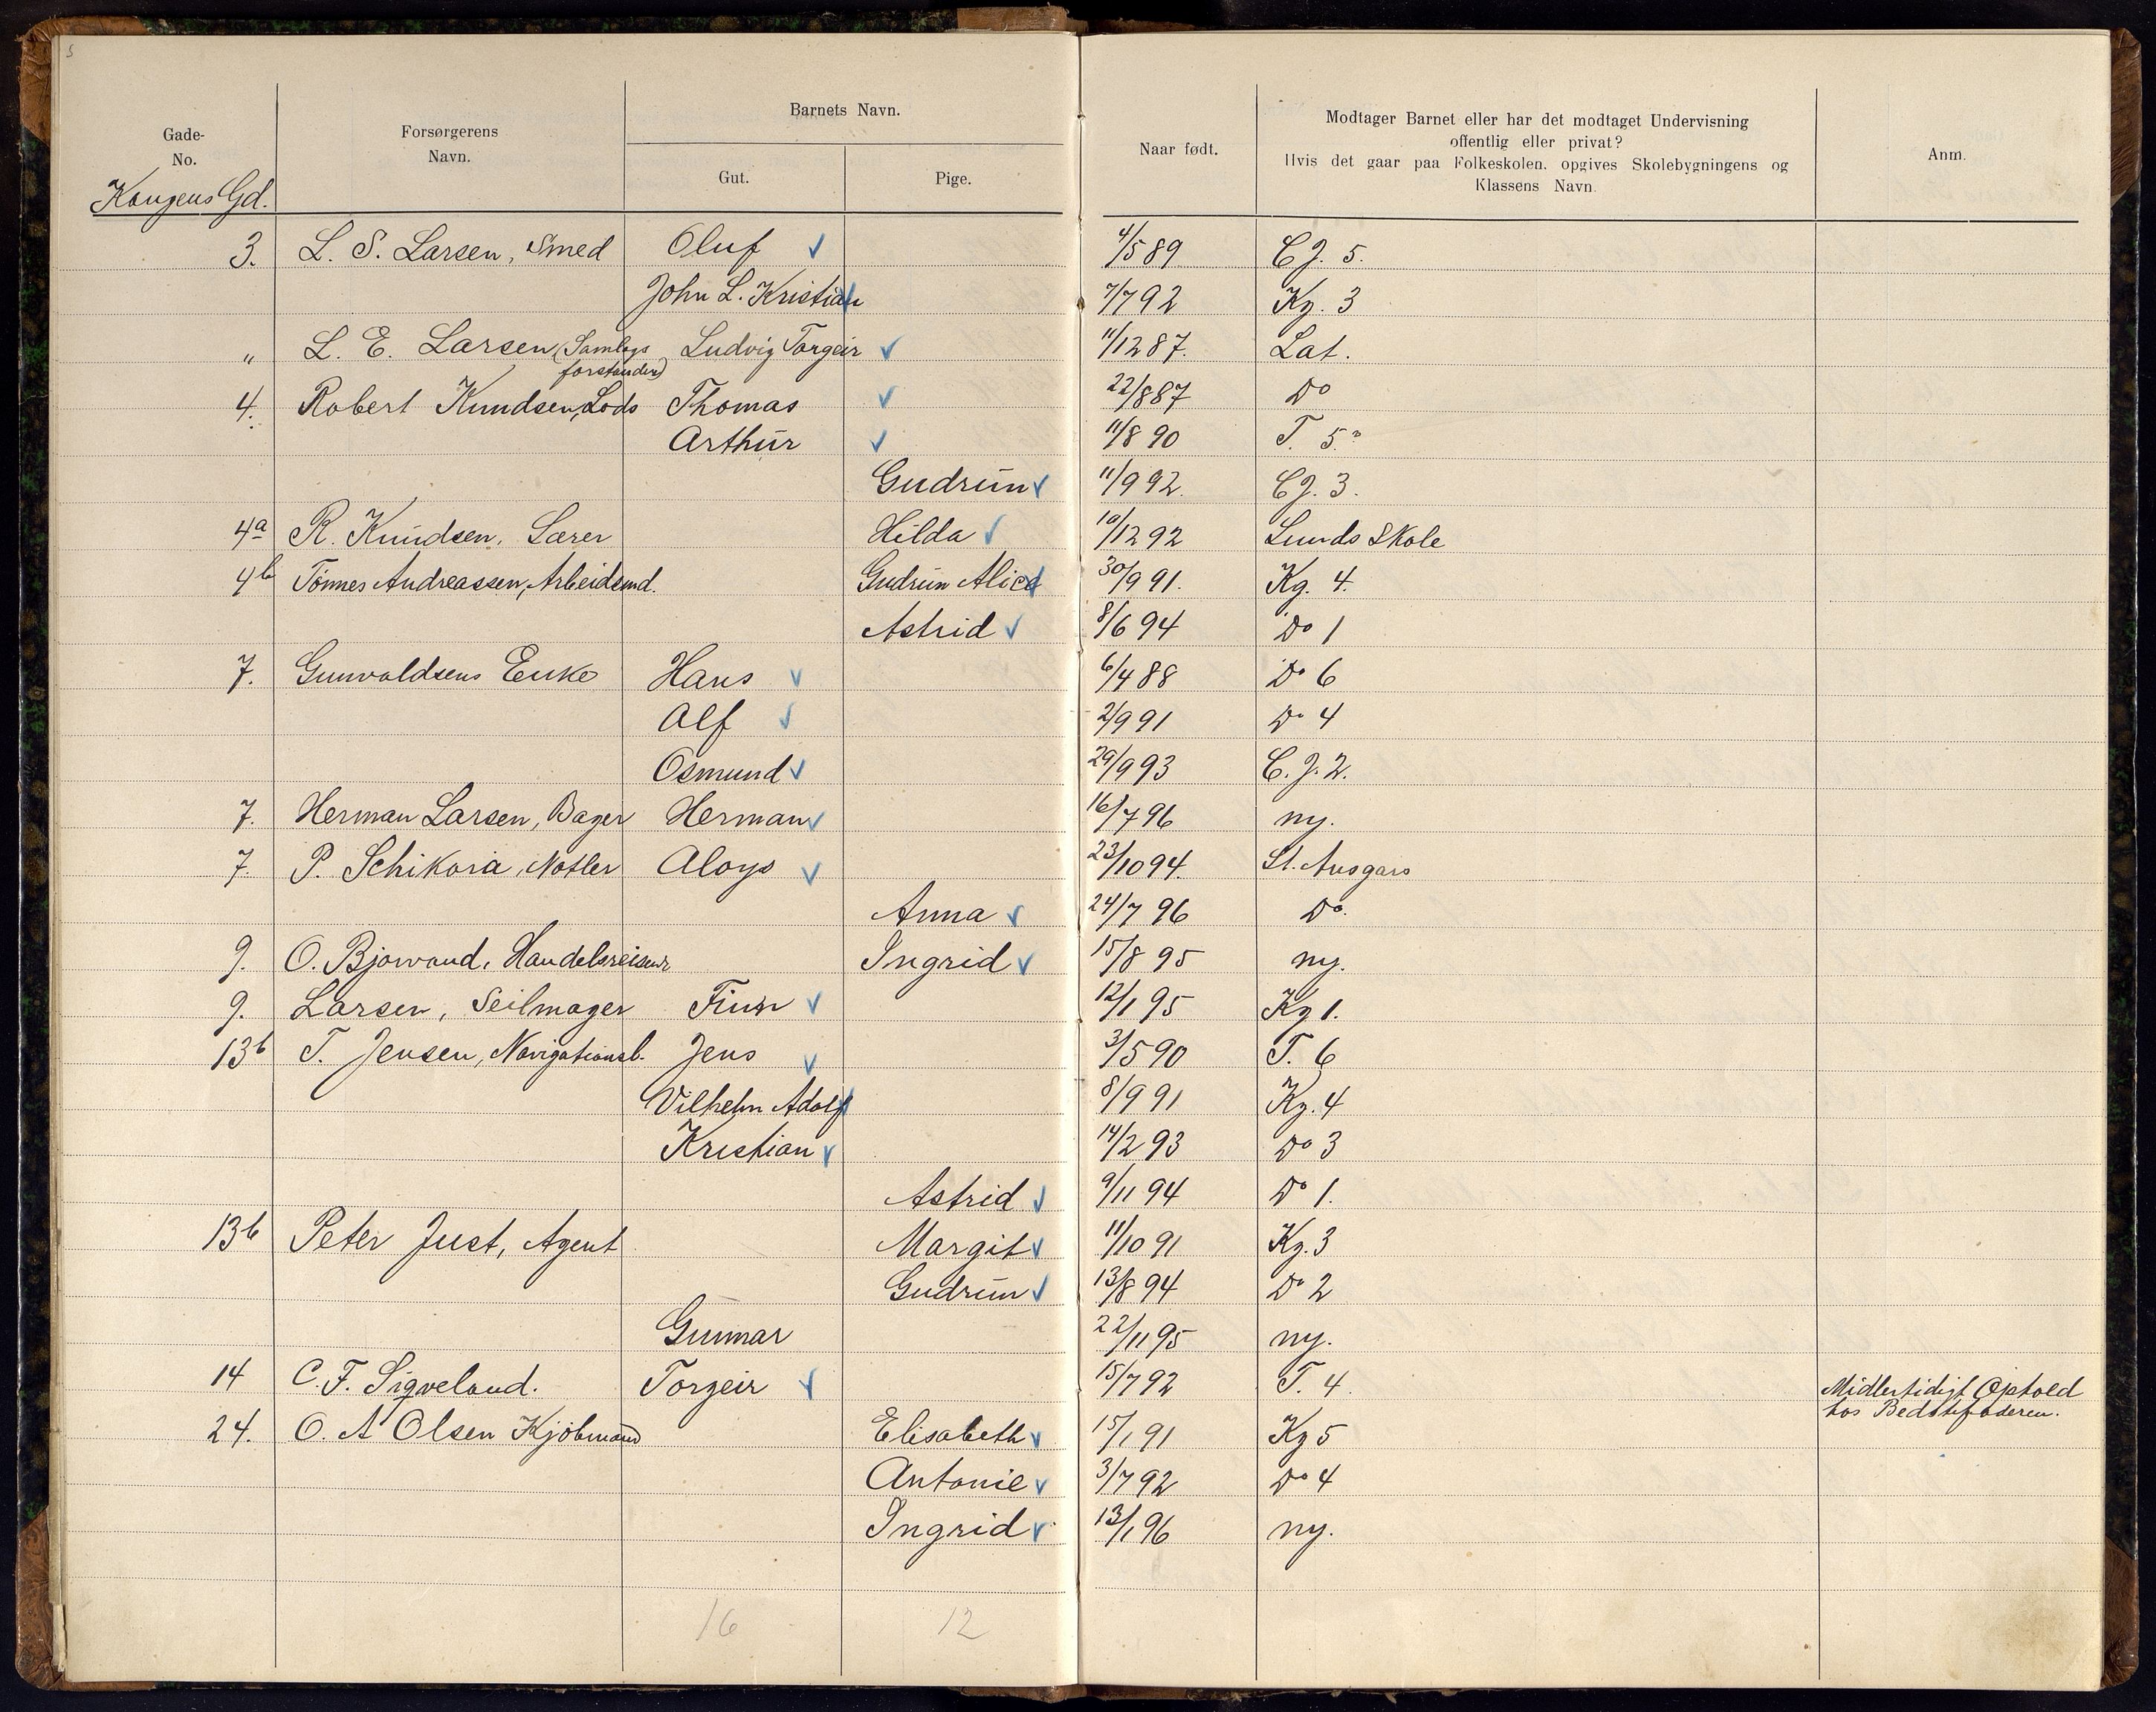 5
Gade-
No.
Kongens Gd.
Forsørgerens
Navn.
Barnets Navn.
Gut.
Pige.
Naar født.
Modtager Barnet eller har det modtaget Undervisning
offentlig eller privat?
Hvis det gaar paa Folkeskolen, opgives Skolebygningens og
Klassens Navn.
Anm.
3. L. S. Larsen, Smed Oluf 4/5 89 C J. 5.
John L. Kristian 7/7 92 Kg. 3
„ L. E. Larsen (Samlags Ludvig Torgeir 11/12 87. Lat.
forstander)
4. Robert Knudsen, Lods Thomas 22/8 87 Do
Arthur 11/8 90 T. 5.
Gudrun 11/9 92. C J. 3.
4a R. Knudsen, Lærer Hilda 10/12 92 Lunds Skole
4b Tönnes Andreassen, Arbeidsmd. Gudrun Alice 30/9 91. Kg. 4.
Astrid 8/6 94 Do 1
7. Gunvaldsens Enke Hans 6/4 88 Do 6
Alf 2/9 91 Do 4
Osmund 29/9 93 C. J. 2.
7. Herman Larsen, Bager Herman 16/7 96 ny.
7. P. Schikora, Notler Aloys 23/10 94. St. Ansgars
Anna 24/7 96 Do.
9. O. Bjorvand, Handelsreisende Ingrid 15/8 95 ny.
9. Larsen, Seilmager Finn 12/1 95 Kg 1.
13b T. Jensen, Navigationsb. Jens 3/5 90 T. 6
Vilhelm Adolf 8/9 91 Kg. 4
Kristian 14/2 93 Do 3
Astrid 9/11 94 Do 1.
13b Peter Just, Agent Margit 11/10 91 Kg. 3
Gudrun 13/8 94 Do 2
Gunnar 22/11 95 ny.
14 C. F. Sigveland. Torgeir 15/7 92 T. 4. Midlertidigt Ophold
hos Bedstefaderen.
24. O. A Olsen Kjöbmand Elisabeth 15/1 91 Kg 5
Antonie 3/7 92 Do 4
Ingrid 13/1 96 ny.
16 12